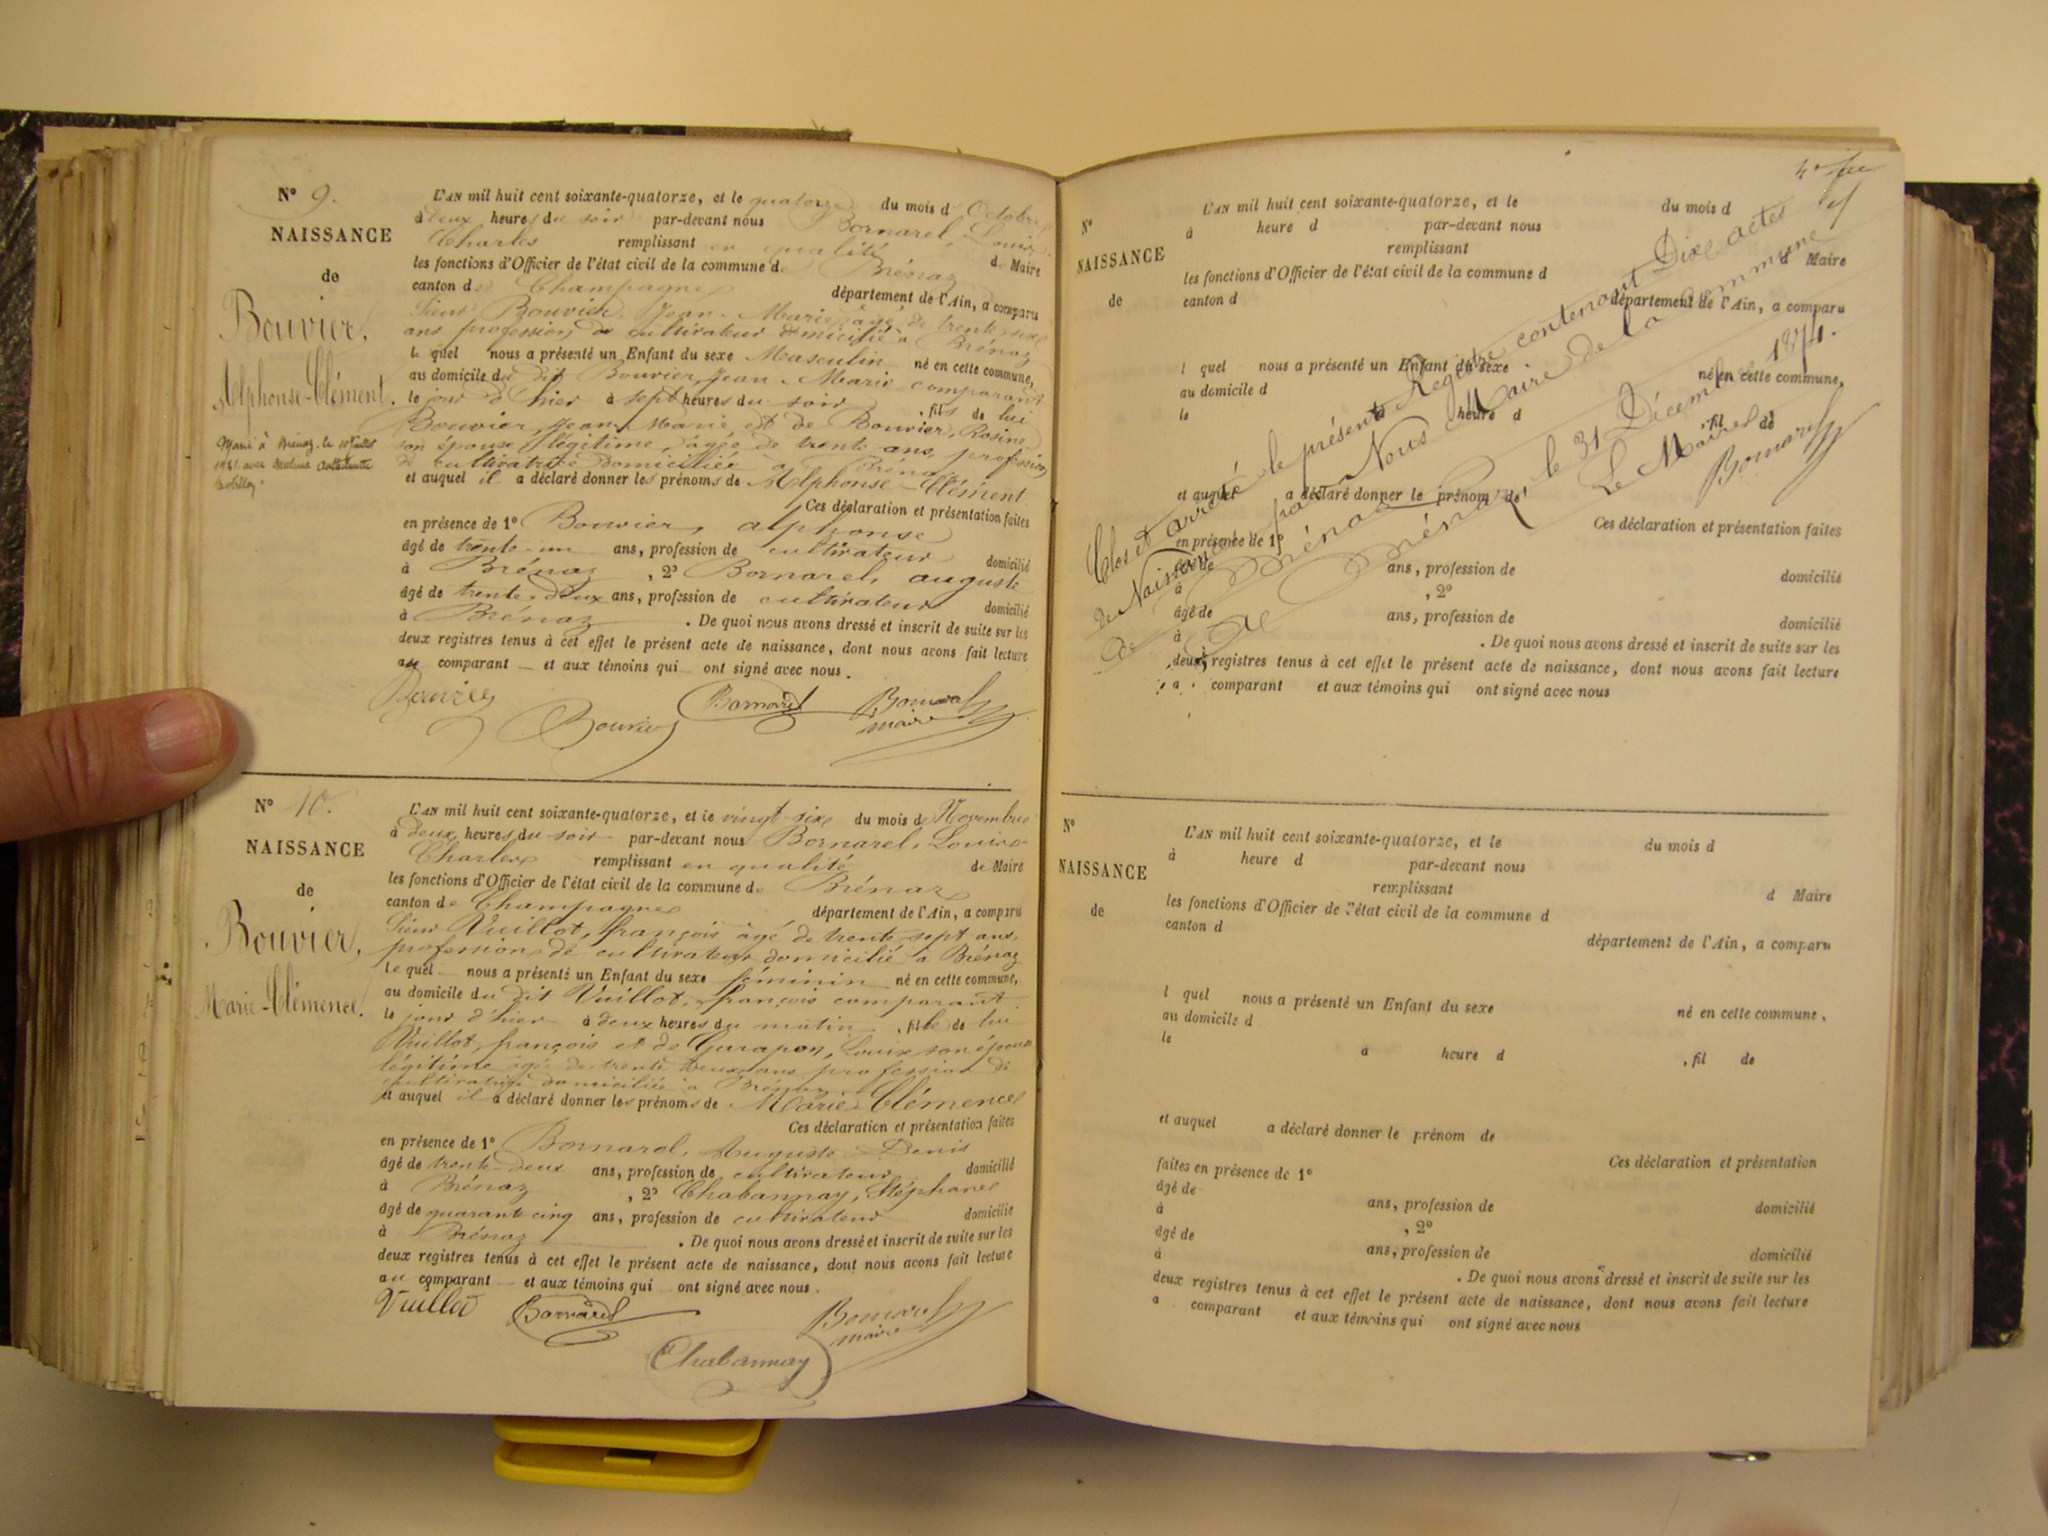 N° 9.
NAISSANCE
de
Bouvier,
Alphonse-Clément.
Marié à Brénaz le
avec
L'AN mil huit cent soixante-quatorze, et le quatorze du mois d'Octobre
à deux heures du soir par-devant nous Bornarel, Louis
Charles remplissant en qualité de Maire
les fonctions d'Officier de l'état civil de la commune de Brénaz
canton de Champagne département de l'Ain, a comparu
Sieur Bouvier, Jean-Marie âgé de trente-six
ans profession de cultivateur domicilié à Brénaz
lequel nous a présenté un Enfant du sexe Masculin né en cette commune,
au domicile du dit Bouvier, Jean-Marie comparant
le jour d'hier à sept heures du soir, fils de lui
Bouvier, Jean-Marie, et de Bouvier, Rosine
son épouse légitime, âgée de trente ans, profession
de cultivatrice domiciliée à Brénaz
et auquel il a déclaré donner les prénoms de Alphonse-Clément
Ces déclaration et présentation faites
en présence de 1° Bouvier, alphonse
âgé de trente-un ans, profession de cultivateur domicilié
à Brénaz, 2° Bornarel, auguste
âgé de trente-deux ans, profession de cultivateur domicilié
à Brénaz. De quoi nous avons dressé et inscrit de suite sur les
deux registres tenus à cet effet le présent acte de naissance, dont nous avons fait lecture
au comparant et aux témoins qui ont signé avec nous.
Bouvier Bouvier Bornarel Bornarel
maire
N° 10.
NAISSANCE
de
Bouvier,
Marie-Clémence.
L'AN mil huit cent soixante-quatorze, et le vingt-six du mois de Novembre
à deux heures du soir par-devant nous Bornarel, Louis
Charles remplissant en qualité de Maire
les fonctions d'Officier de l'état civil de la commune de Brénaz
canton de Champagne département de l'Ain, a comparu
Sieur Vuillot, françois âgé de trente-sept ans,
profession de cultivateur domicilié à Brénaz
lequel nous a présenté un Enfant du sexe féminin né en cette commune,
au domicile du dit Vuillot, françois comparant
le jour d'hier à deux heures du matin, fille de lui
Vuillot, françois et de Gurapon, Louise son épouse
légitime âgée de trente deux ans profession de
cultivatrice domiciliée à Brénaz
et auquel il a déclaré donner les prénoms de Marie Clémence
Ces déclaration et présentation faites
en présence de 1° Bornarel, Auguste Denis
âgé de trente-deux ans, profession de cultivateur domicilié
à Brénaz, 2° Chabannay, Stéphane
âgé de quarante cinq ans, profession de cultivateur domicilié
à Brénaz. De quoi nous avons dressé et inscrit de suite sur les
deux registres tenus à cet effet le présent acte de naissance, dont nous avons fait lecture
au comparant et aux témoins qui ont signé avec nous.
Vuillot Bornarel Bornarel
maire
Chabannay
N°
NAISSANCE
de
L'AN mil huit cent soixante-quatorze, et le du mois d
à heure d par-devant nous
remplissant d Maire
les fonctions d'Officier de l'état civil de la commune d
canton d département de l'Ain, a comparu
l quel nous a présenté un Enfant du sexe né en cette commune,
au domicile d
le à heure d , fil de
et auquel a déclaré donner le prénom de
Ces déclaration et présentation faites
en présence de 1°
âgé de ans, profession de domicilié
à , 2°
âgé de ans, profession de domicilié
à . De quoi nous avons dressé et inscrit de suite sur les
deux registres tenus à cet effet le présent acte de naissance, dont nous avons fait lecture
a comparant et aux témoins qui ont signé avec nous
Clos et arrêté le présent Registre contenant Dix actes
de Naissance par Nous Maire de la commune
de Brénaz
De Brénaz, le 31 Décembre 1874.
Le Maire
Bornarel
N°
NAISSANCE
de
L'AN mil huit cent soixante-quatorze, et le du mois d
à heure d par-devant nous
remplissant d Maire
les fonctions d'Officier de l'état civil de la commune d
canton d département de l'Ain, a comparu
l quel nous a présenté un Enfant du sexe né en cette commune,
au domicile d
le à heure d , fil de
et auquel a déclaré donner le prénom de
Ces déclaration et présentation
faites en présence de 1°
âgé de ans, profession de domicilié
à , 2°
âgé de ans, profession de domicilié
à . De quoi nous avons dressé et inscrit de suite sur les
deux registres tenus à cet effet le présent acte de naissance, dont nous avons fait lecture
a comparant et aux témoins qui ont signé avec nous